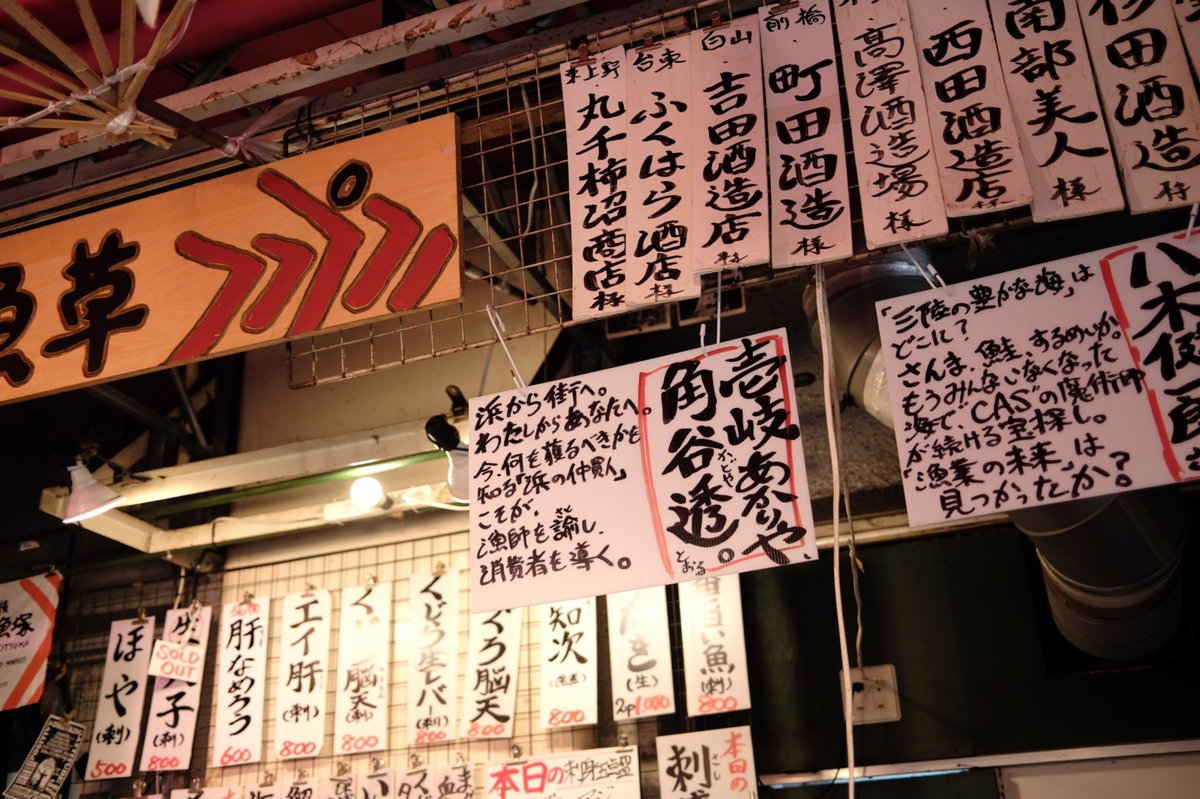 魚草
東上野
丸千柿沼商店様
台東
ふくはら酒店様
白山
吉田酒造店様
前橋
町田酒造様
高澤酒造場様
西田酒造店様
南部美人様
杉田酒造様
壱岐あかりや、
角谷透。
かどや
とおる
浜から街作へ。
わたしからあなたへ。
今、何を獲るべきかを
知る「浜の仲買人」
こそが、
漁師を諭し、
さと
消費者を導く。
「三陸の豊かな海」は
どこに？
さんま、鮭、するめいか。
もうみんないなくなった
海で、"CAS"の魔術師
が続ける宝探し。
「漁業の未来」は
見つかったか？
ほや
(刺)
500
SOLD
OUT
(刺)
800
肝なめろう
600
エイ肝
(刺)
800
脳天
(刺)
800
くじら生レバー
(刺)
800
ぐろ脳天
800
知次
800
(生)
2p1,000
魚
(刺)
800
本日の刺身
本日の
刺
さし